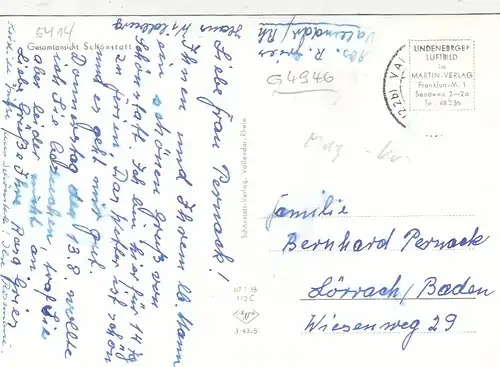 5414
Gesamtansicht Schönstatt
Liebe Frau Pernack!
Ihnen und Ihrem lb. Mann
ein schönen Gruß von
Schönstatt. Ich bin hier für 14 Tg
in Ferien. Das Wetter ist schön
und es geht mir gut.
Donnerstag den 13.8. wollte
ich Sie besuchen, traf Sie
aber leider nicht an.
Liebe Grüße Ihre
Haus Wildburg
Vallendar/Rh
G4946
(22b) VA
LINDENBERGER
LUFTBILD
im
MARTIN-VERLAG
Frankfurt-M. 1
Sandweg 2-2a
Tel. 48236
Schönstatt-Verlag, Vallendar, Rhein
3-43/5
Familie
Bernhard Pernack
Lörrach/Baden
Wiesenweg 29